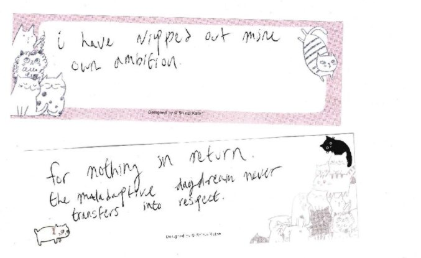 i have nipped out mine
own ambition
Designed by
for nothing in return.
the maladaptive daydream never
transfers into respect.
Designed by